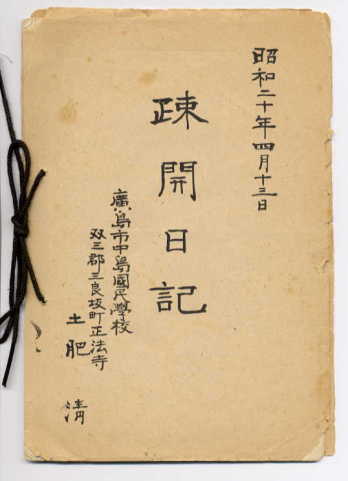 昭和二十年四月十三日
疎開日記
廣島市中島國民學校
双三郡三良坂町正法寺
土肥 清